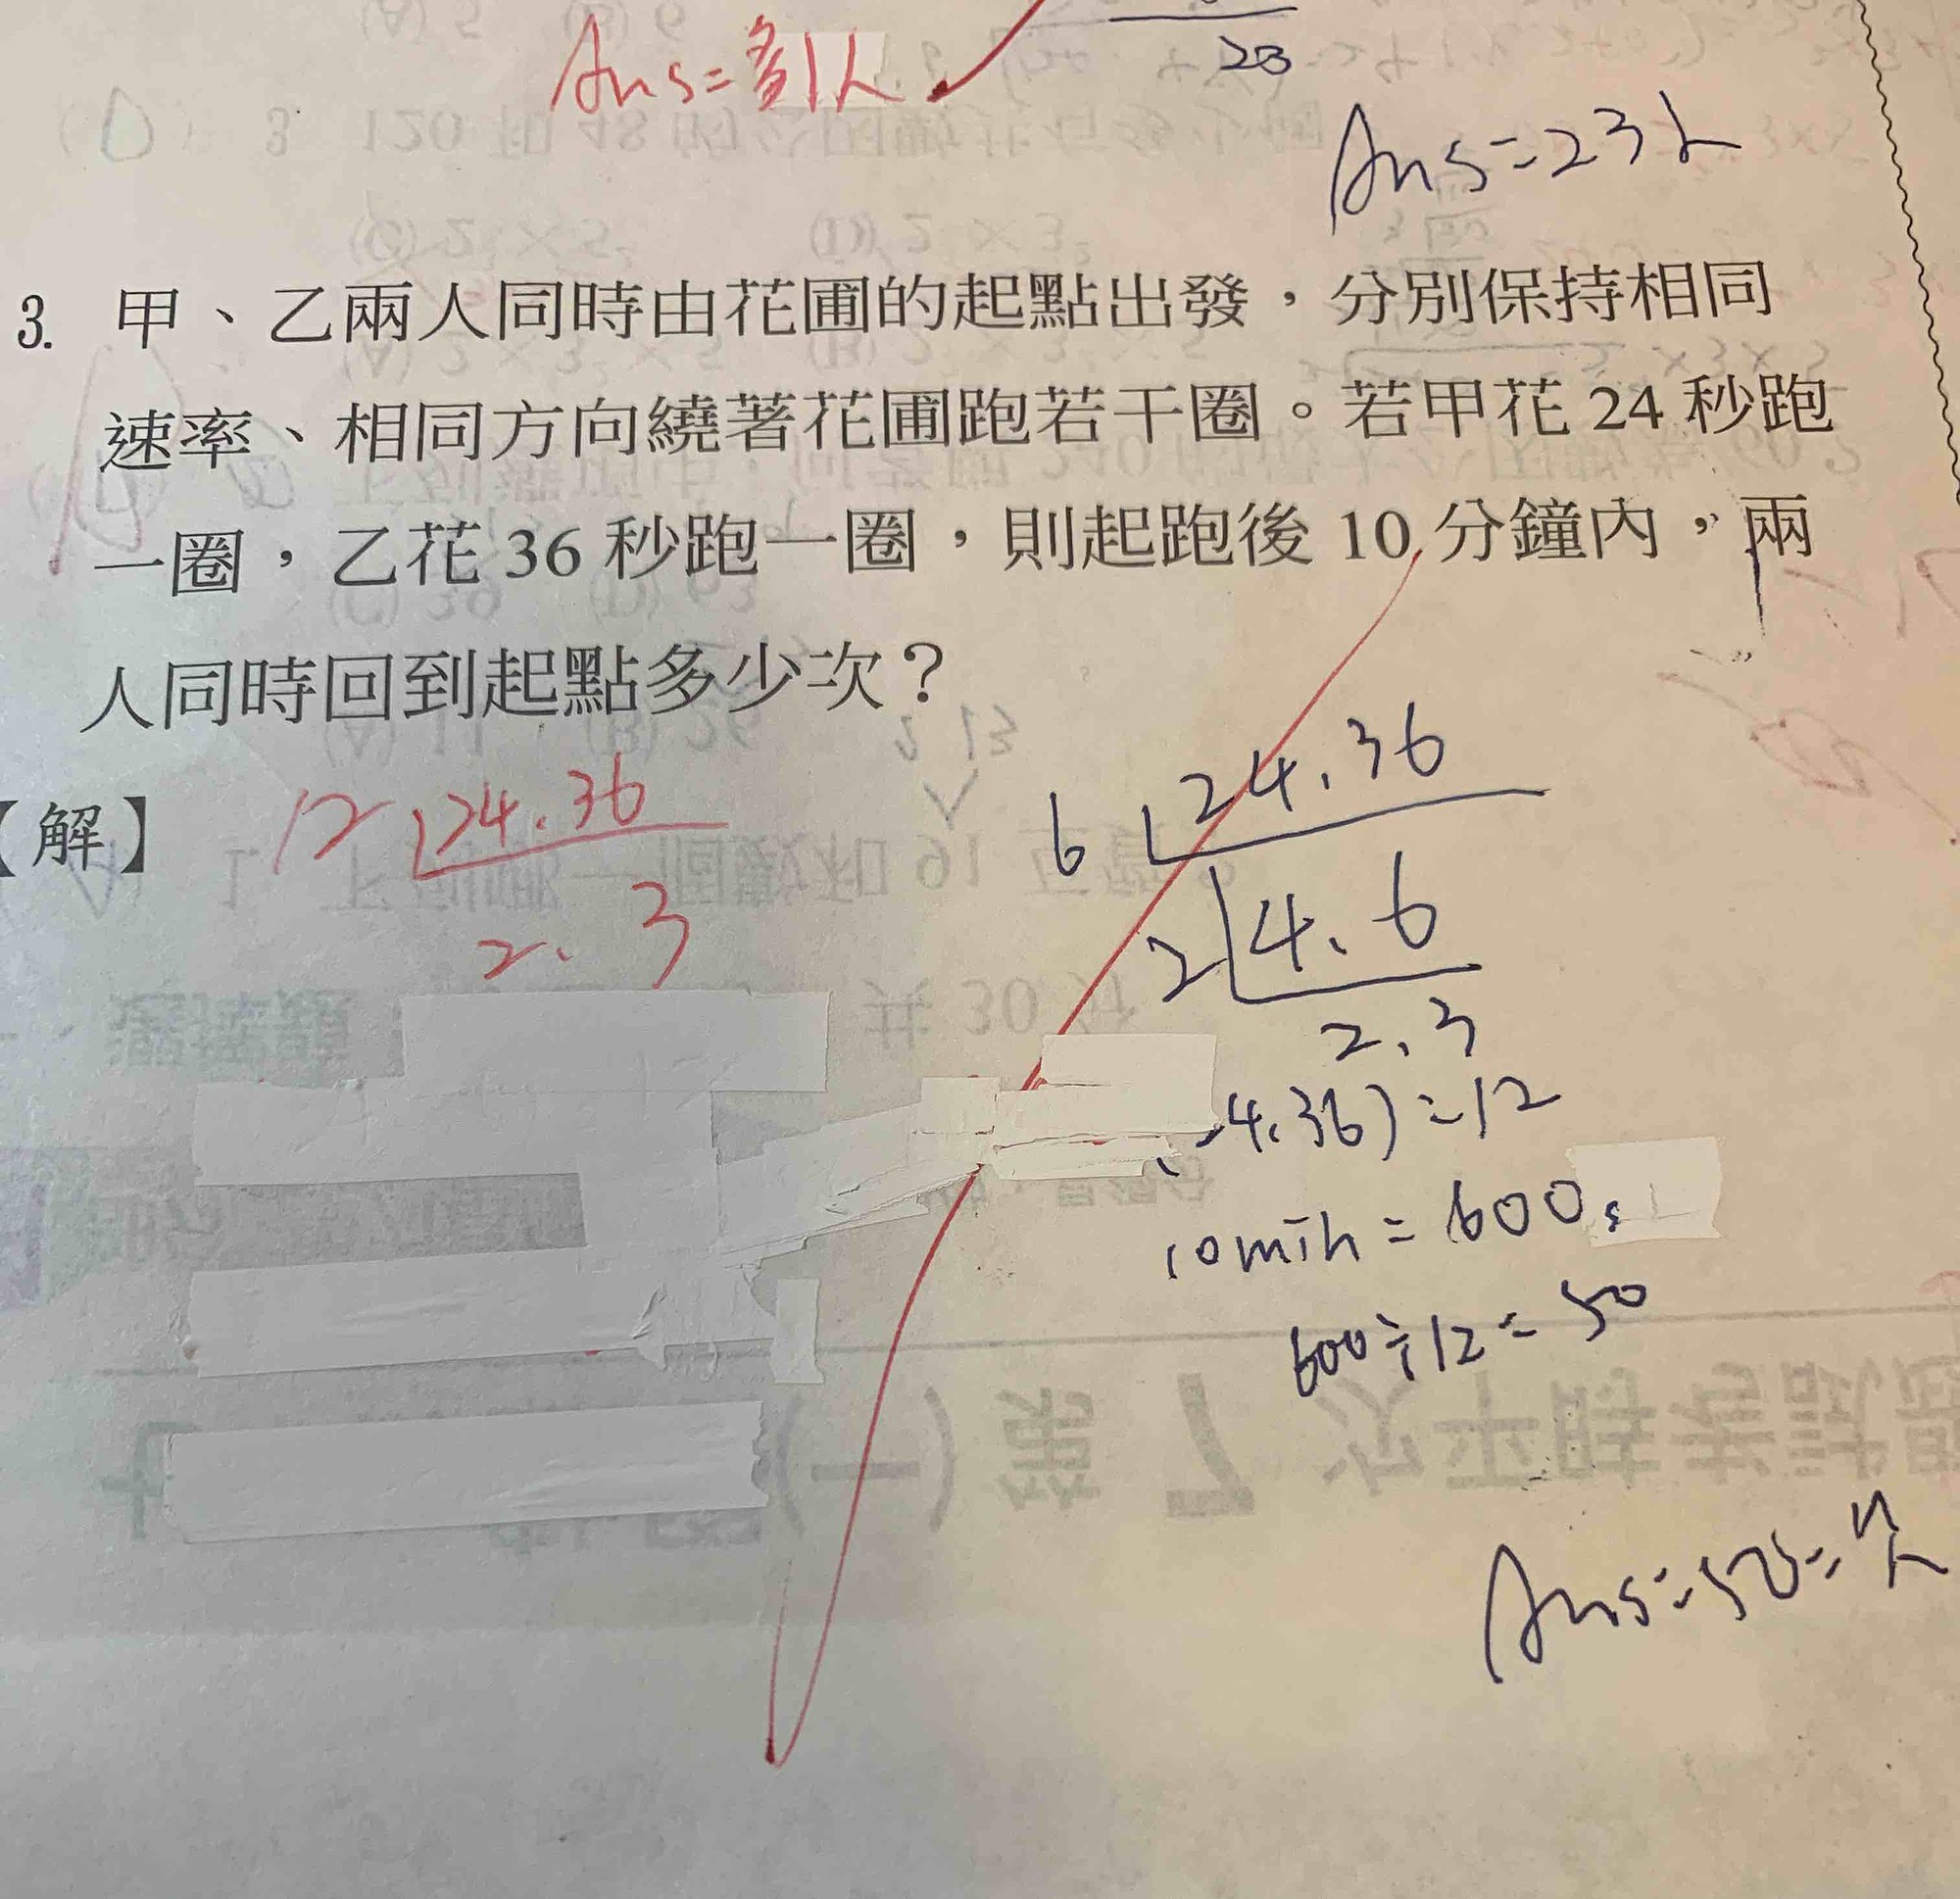 Ans=多1人
23
Ans=23人
3. 甲、乙兩人同時由花圃的起點出發，分別保持相同
速率、相同方向繞著花圃跑若干圈。若甲花 24 秒跑
一圈，乙花 36 秒跑一圈，則起跑後 10 分鐘內，兩
人同時回到起點多少次？
【解】
12 24.36
2. 3
6 24.36
2 4.6
2.3
4.36)=12
10min=600s
600÷12=50
Ans=50=次